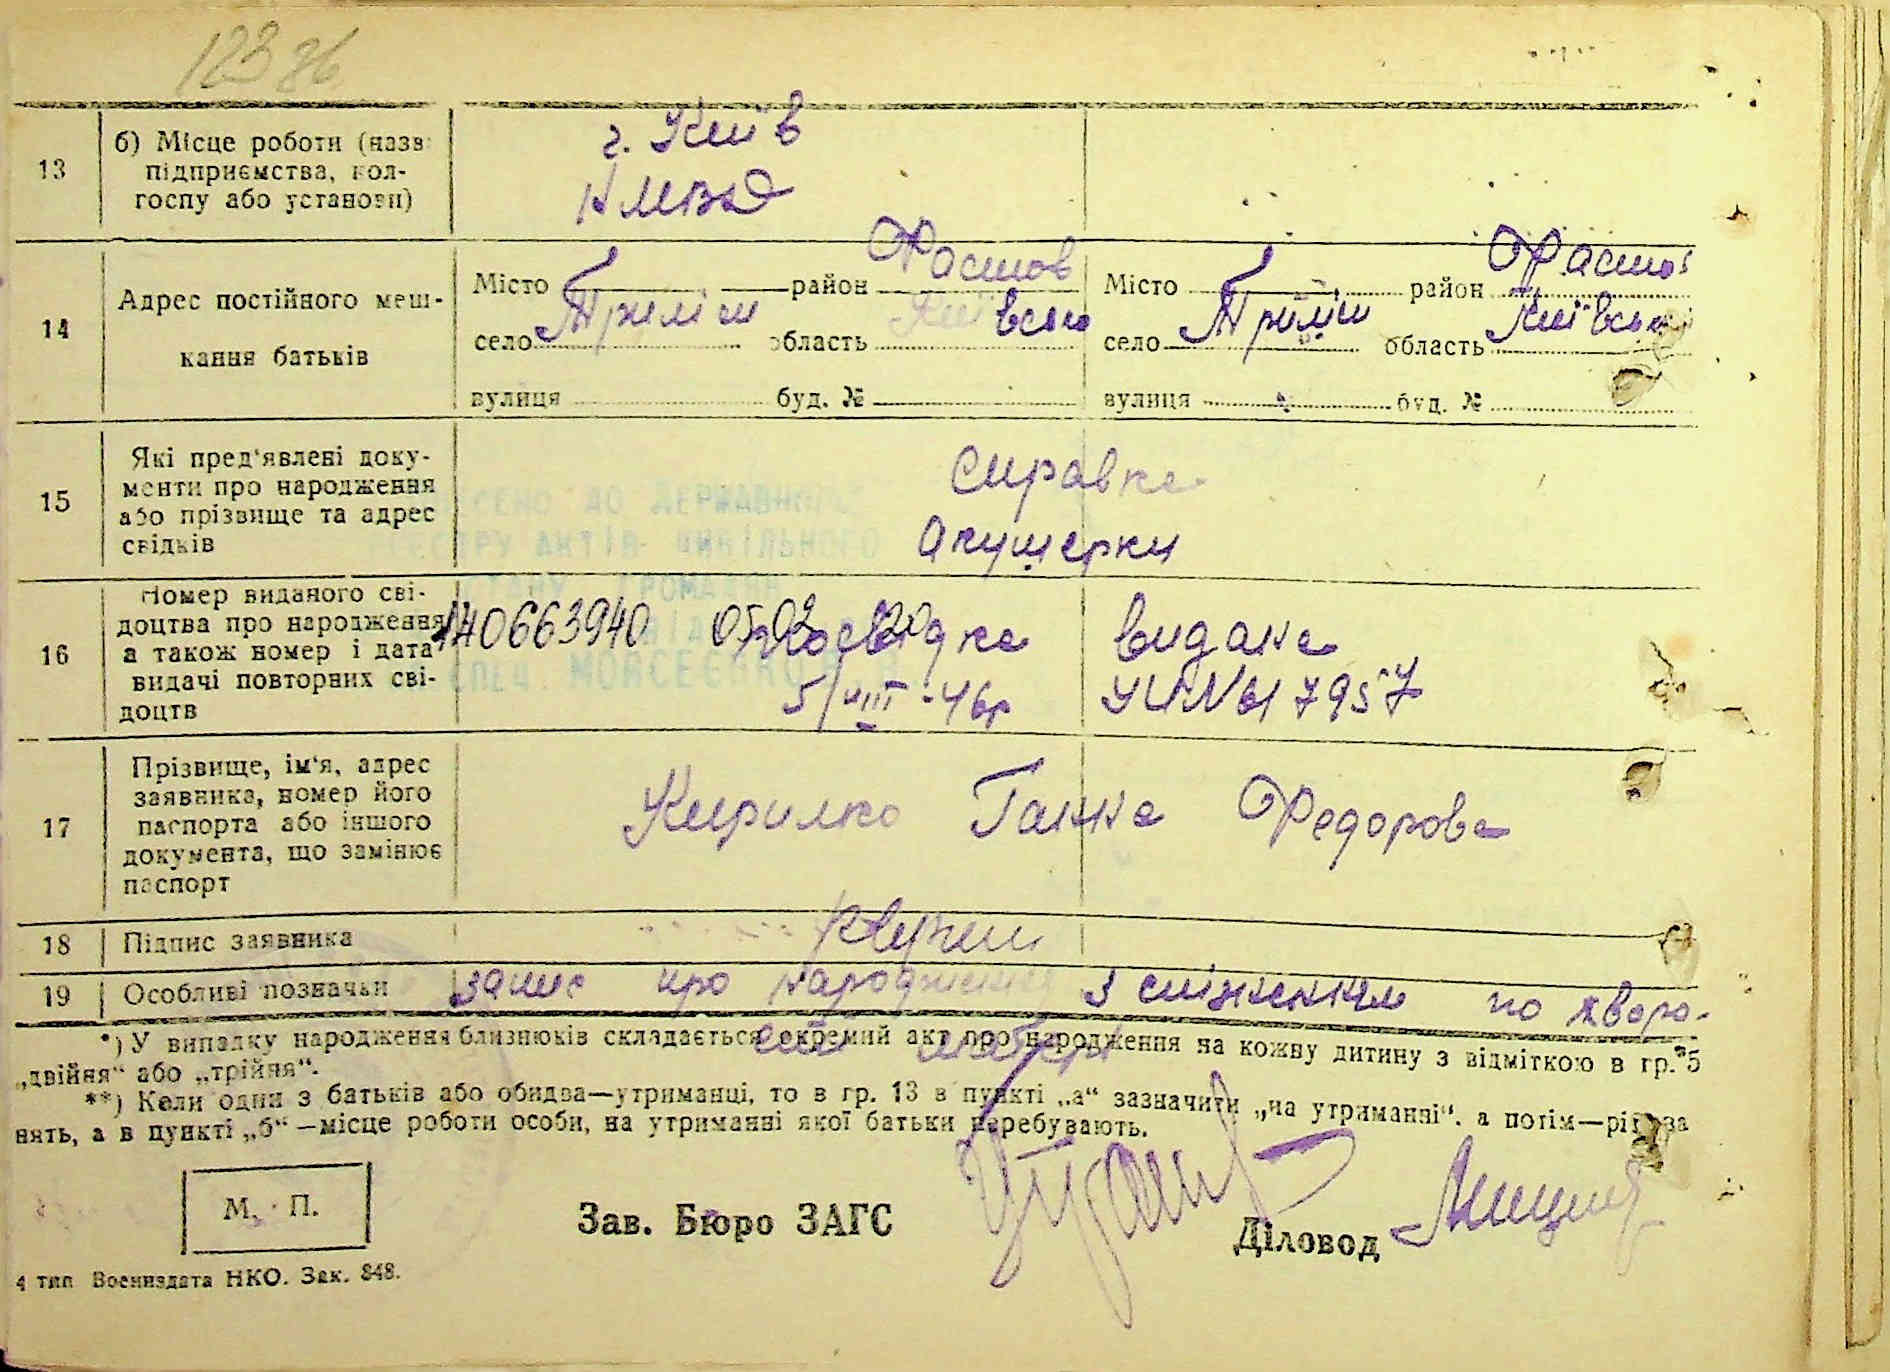 12386
13
б) Місце роботи (назв
підприємства, кол-
госпу або установи)
г. Київ
14
Адрес постійного меш-
кання батьків
Місто район Фастов
село область Київська
вулиця буд. №
Місто район Фастов
село область Київськ
вулиця буд. №
15
Які пред'явлені доку-
менти про народження
або прізвище та адрес
свідків
справка
акушерки
ДО ДЕРЖАВНОГО
АКТІВ ЦИВІЛЬНОГО
СТАНУ ГРОМАДЯН
16
Номер виданого сві-
доцтва про народження
а також номер і дата
видачі повторних сві-
доцтв
140663940 05.02 20
посвідка видана
5/VIII-46р № 617957
17
Прізвище, ім'я, адрес
заявника, номер його
паспорта або іншого
документа, що замінює
паспорт
Кирилко Ганна Федорова
18 Підпис заявника
19 Особливі позначки
запис про народження з спізненням по хворо-
сті матері
*) У випадку народження близнюків складається окремий акт про народження на кожну дитину з відміткою в гр. 5
„двійня“ або „трійня“.
**) Коли один з батьків або обидва—утриманці, то в гр. 13 в пункті „а“ зазначити „на утриманні“. а потім—рід за
нять, а в пункті „б“—місце роботи особи, на утриманні якої батьки перебувають.
М. П.
Зав. Бюро ЗАГС
Діловод
4 тип Воениздата НКО. Зак. 848.